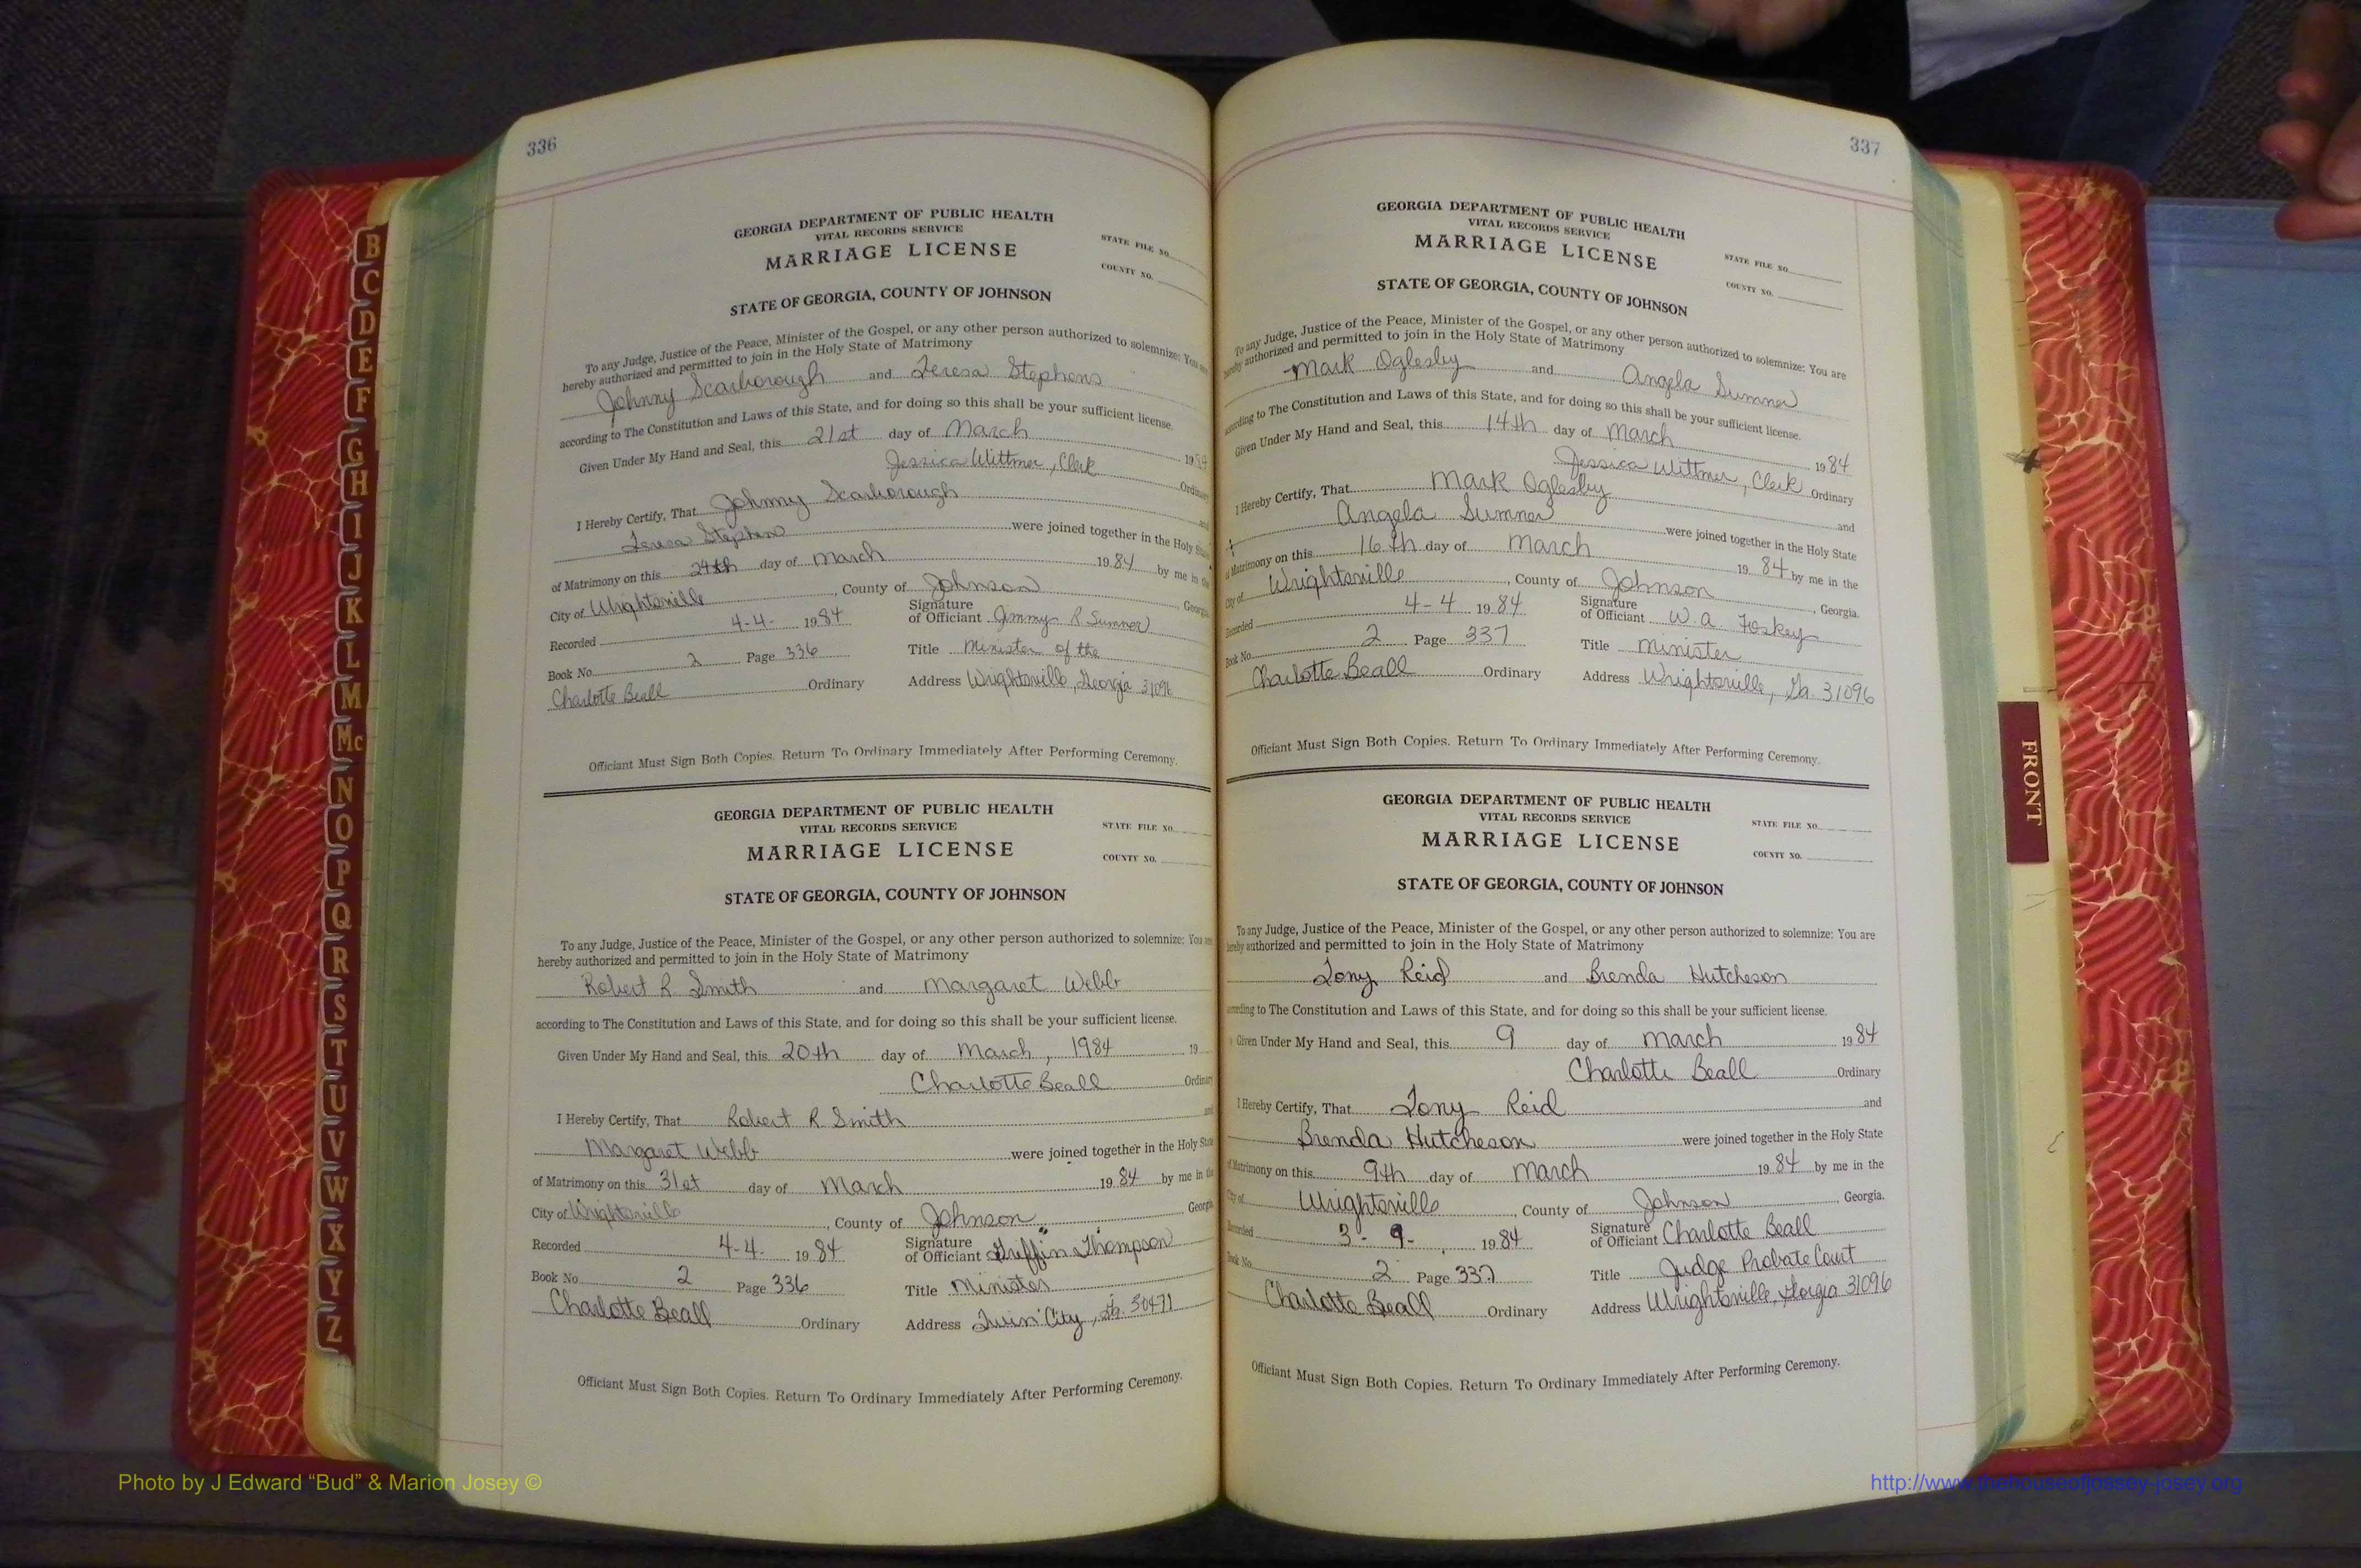 336
GEORGIA DEPARTMENT OF PUBLIC HEALTH
VITAL RECORDS SERVICE
MARRIAGE LICENSE
STATE FILE NO.
COUNTY NO.
STATE OF GEORGIA, COUNTY OF JOHNSON
To any Judge, Justice of the Peace, Minister of the Gospel, or any other person authorized to solemnize: You are
hereby authorized and permitted to join in the Holy State of Matrimony
Johnny Scarborough and Teresa Stephens
according to The Constitution and Laws of this State, and for doing so this shall be your sufficient license.
Given Under My Hand and Seal, this 21st day of March 1984
Jessica Wittmer, Clerk Ordinary
I Hereby Certify, That Johnny Scarborough and
Teresa Stephens were joined together in the Holy State
of Matrimony on this 24th day of March 1984 by me in the
City of Wrightsville, County of Johnson, Georgia
Recorded 4-4- 1984 Signature of Officiant Jimmy R Sumner
Book No. 2 Page 336 Title Minister of the
Charlotte Beall Ordinary Address Wrightsville, Georgia 31096
Officiant Must Sign Both Copies. Return To Ordinary Immediately After Performing Ceremony.
GEORGIA DEPARTMENT OF PUBLIC HEALTH
VITAL RECORDS SERVICE
MARRIAGE LICENSE
STATE FILE NO.
COUNTY NO.
STATE OF GEORGIA, COUNTY OF JOHNSON
To any Judge, Justice of the Peace, Minister of the Gospel, or any other person authorized to solemnize: You are
hereby authorized and permitted to join in the Holy State of Matrimony
Robert R Smith and Margaret Webb
according to The Constitution and Laws of this State, and for doing so this shall be your sufficient license.
Given Under My Hand and Seal, this 20th day of March, 1984 19
Charlotte Beall Ordinary
I Hereby Certify, That Robert R Smith and
Margaret Webb were joined together in the Holy State
of Matrimony on this 31st day of March 1984 by me in the
City of Wrightsville, County of Johnson Georgia
Recorded 4-4- 1984 Signature of Officiant Griffin Thompson
Book No. 2 Page 336 Title Minister
Charlotte Beall Ordinary Address Twin City, Ga. 30471
Officiant Must Sign Both Copies. Return To Ordinary Immediately After Performing Ceremony.
337
GEORGIA DEPARTMENT OF PUBLIC HEALTH
VITAL RECORDS SERVICE
MARRIAGE LICENSE
STATE FILE NO.
COUNTY NO.
STATE OF GEORGIA, COUNTY OF JOHNSON
To any Judge, Justice of the Peace, Minister of the Gospel, or any other person authorized to solemnize: You are
hereby authorized and permitted to join in the Holy State of Matrimony
Mark Oglesby and Angela Sumner
according to The Constitution and Laws of this State, and for doing so this shall be your sufficient license.
Given Under My Hand and Seal, this 14th day of March 1984
Jessica Wittmer, Clerk Ordinary
I Hereby Certify, That Mark Oglesby and
Angela Sumner were joined together in the Holy State
of Matrimony on this 16th day of March 1984 by me in the
City of Wrightsville, County of Johnson, Georgia.
Recorded 4-4 1984 Signature of Officiant W. A. Foskey
Book No. 2 Page 337 Title Minister
Charlotte Beall Ordinary Address Wrightsville, Ga. 31096
Officiant Must Sign Both Copies. Return To Ordinary Immediately After Performing Ceremony.
GEORGIA DEPARTMENT OF PUBLIC HEALTH
VITAL RECORDS SERVICE
MARRIAGE LICENSE
STATE FILE NO.
COUNTY NO.
STATE OF GEORGIA, COUNTY OF JOHNSON
To any Judge, Justice of the Peace, Minister of the Gospel, or any other person authorized to solemnize: You are
hereby authorized and permitted to join in the Holy State of Matrimony
Tony Reid and Brenda Hutcheson
according to The Constitution and Laws of this State, and for doing so this shall be your sufficient license.
Given Under My Hand and Seal, this 9 day of March 1984
Charlotte Beall Ordinary
I Hereby Certify, That Tony Reid and
Brenda Hutcheson were joined together in the Holy State
of Matrimony on this 9th day of March 1984 by me in the
City of Wrightsville, County of Johnson, Georgia.
Recorded 3-9-, 1984 Signature of Officiant Charlotte Beall
Book No. 2 Page 337 Title Judge Probate Court
Charlotte Beall Ordinary Address Wrightsville, Georgia 31096
Officiant Must Sign Both Copies. Return To Ordinary Immediately After Performing Ceremony.
B
C
D
E
F
G
H
I
J
K
L
M
Mc
N
O
P
Q
R
S
T
U
V
W
X
Y
Z
FRONT
Photo by J Edward “Bud” & Marion Josey ©
http://www.thehouseofjossey-josey.org